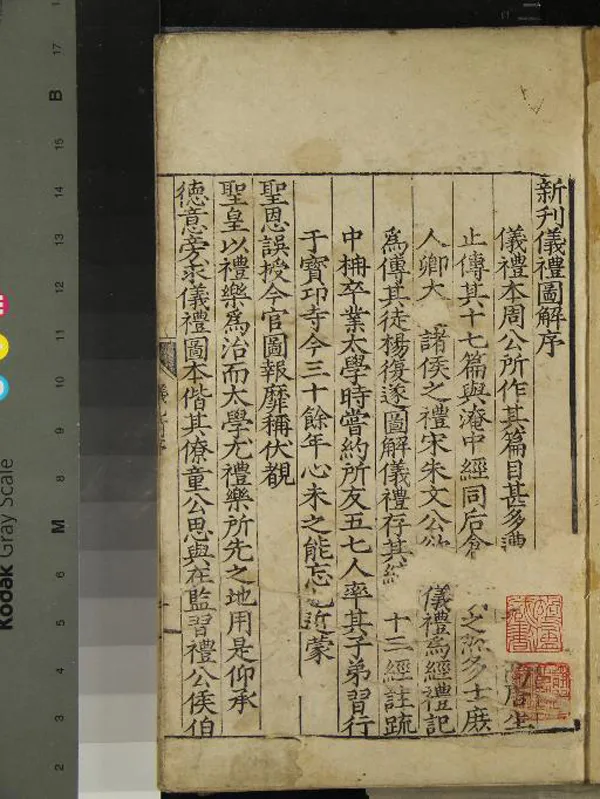 新刊儀禮圖解序
儀禮本周公所作其篇目甚多 高唐生
止傳其十七篇與淹中經同后倉 之 多士庶
人卿大 諸侯之禮宋朱文公欲 儀禮為經禮記
為傳其徒楊復遂圖解儀禮存其 十三經註疏
中柟卒業太學時嘗約所友五七人率其子弟習行
于寶卭寺今三十餘年心未之能忘 近蒙
聖恩誤授今官圖報靡稱伏覩
聖皇以禮樂為治而太學尤禮樂所先之地用是仰承
德意旁求儀禮圖本偕其僚童公思與在監習禮公侯伯
B
17
15
14
13
12
11
10
9
8
M
6
5
4
3
2
Kodak Gray Scale